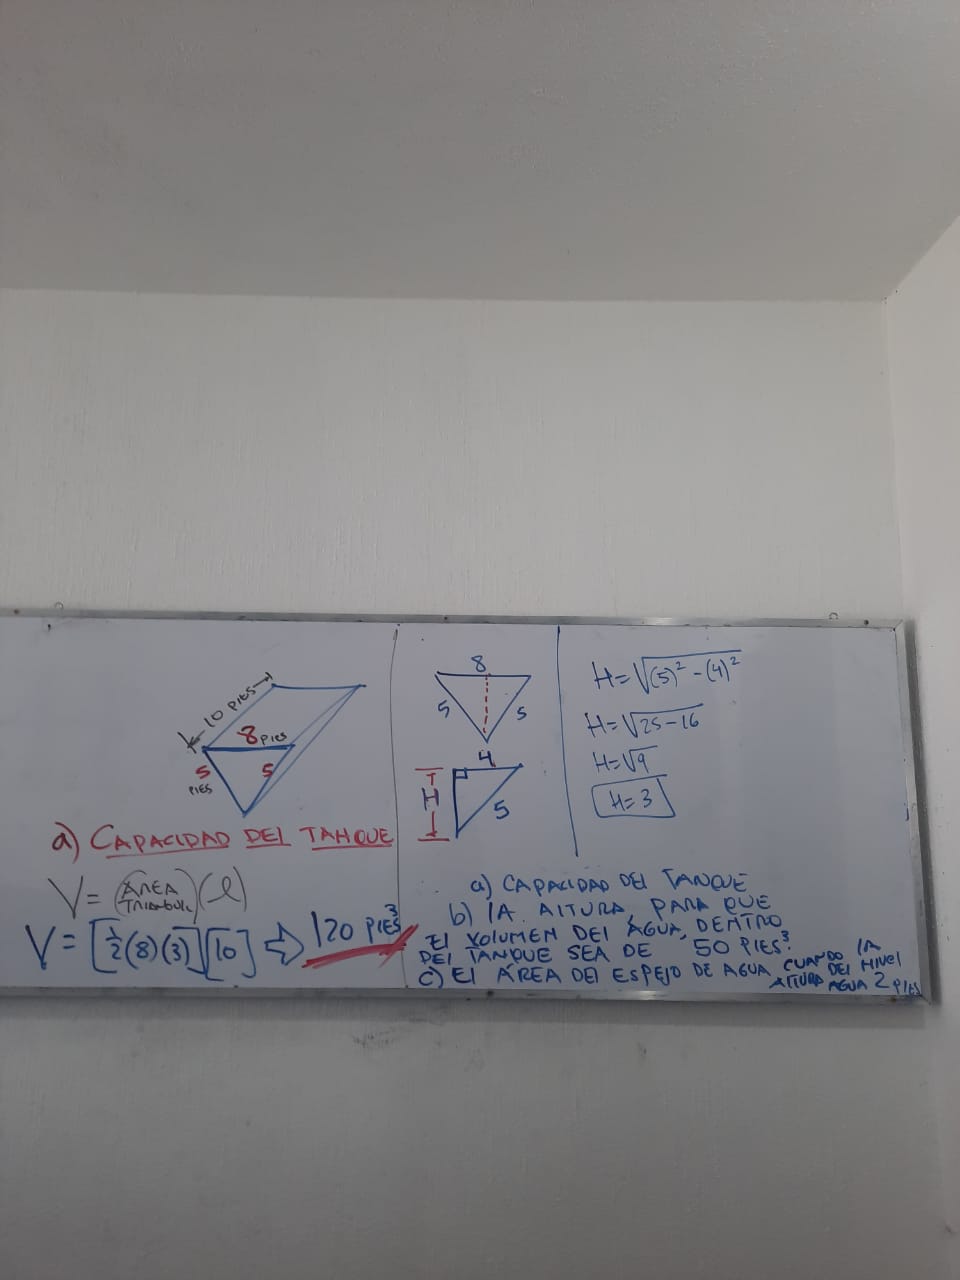 10 PIES
8 PIES
5
PIES
5
a) CAPACIDAD DEL TANQUE
V = (ÁREA TRIANGULO)(l)
V = [1/2(8)(3)][10] ⇨ 120 PIES³
8
5
5
4
H
5
H=√(5)²-(4)²
H=√25-16
H=√9
H=3
a) CAPACIDAD DEL TANQUE
b) LA ALTURA, PARA QUE
EL VOLUMEN DEL AGUA, DENTRO
DEL TANQUE SEA DE 50 PIES³.
c) EL ÁREA DEL ESPEJO DE AGUA CUANDO LA
ALTURA DEL NIVEL
AGUA 2 PIES